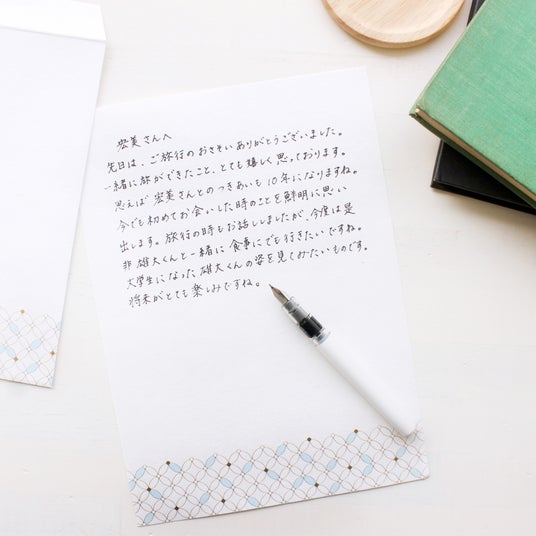 宏美さんへ
先日は、ご旅行のおさそいありがとうございました。
一緒に旅ができたこと、とても嬉しく思っております。
思えば 宏美さんとのつきあいも 10年になりますね。
今でも初めてお会いした時のことを鮮明に思い
出します。旅行の時もお話ししましたが、今度は是
非 雄大くんと一緒に 食事にでも行きたいですね。
大学生になった雄大くんの姿を見てみたいものです。
将来がとても楽しみですね。